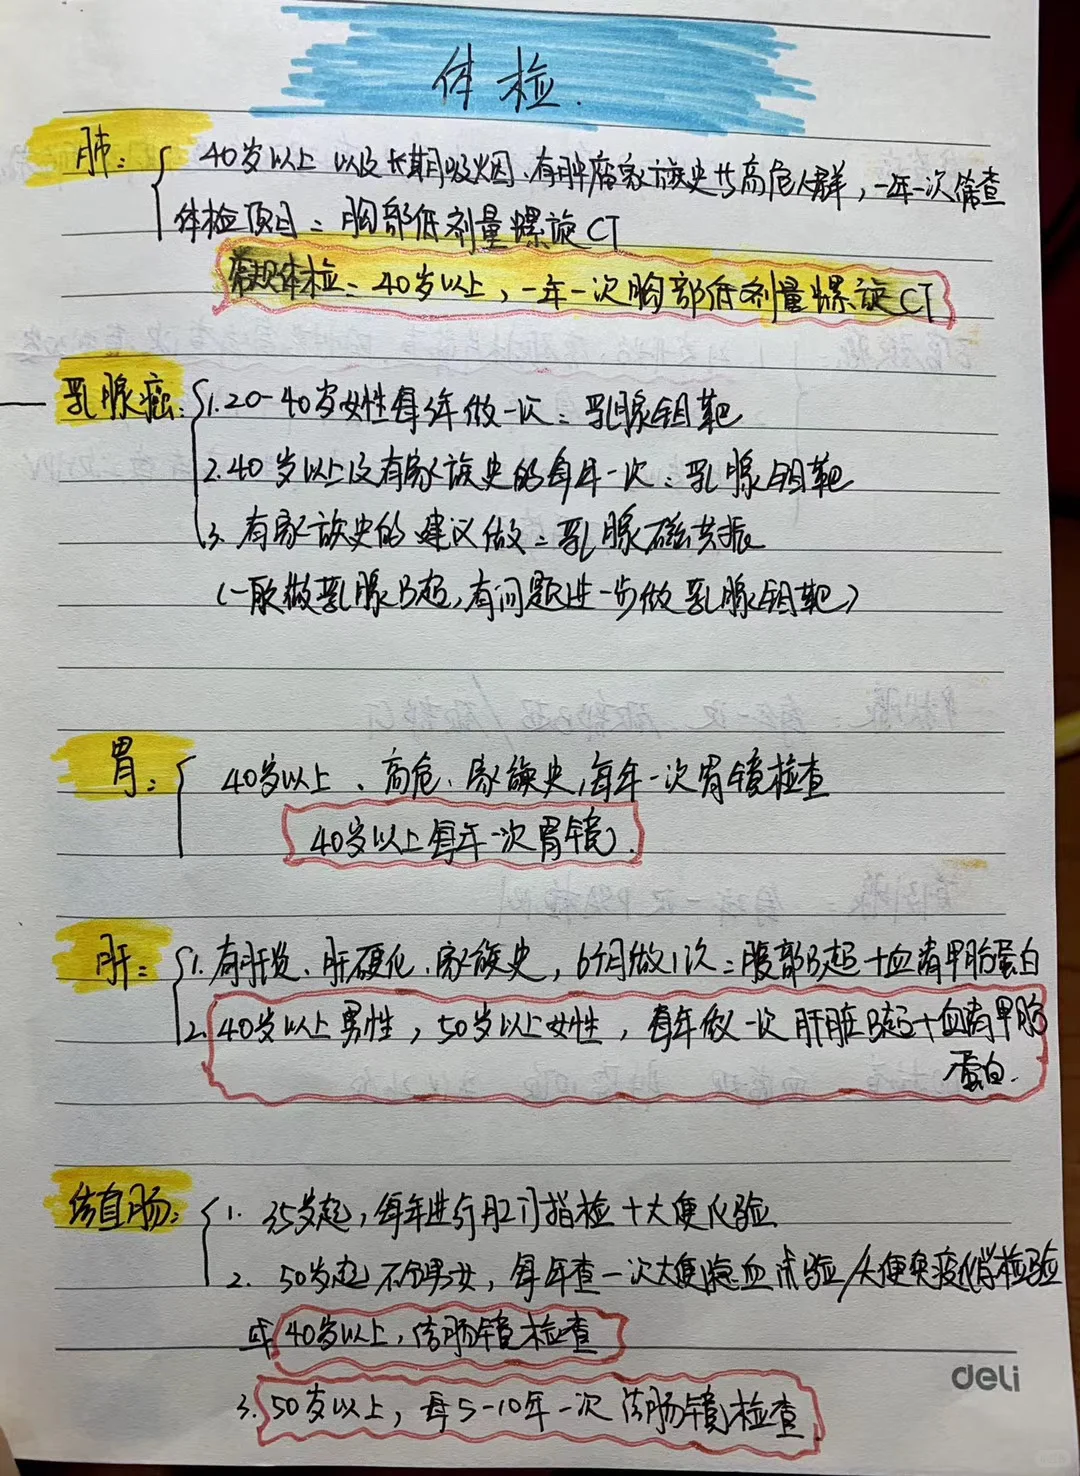 体检.
肺: 40岁以上以及长期吸烟、有肺癌家族史等高危人群,一年一次筛查
体检项目: 胸部低剂量螺旋CT
常规体检: 40岁以上,一年一次胸部低剂量螺旋CT
乳腺癌: 1.20-40岁女性每3年做一次: 乳腺钼靶
2.40岁以上及有家族史的每年一次: 乳腺钼靶
3.有家族史的建议做: 乳腺磁共振
(一般做乳腺B超,有问题进一步做乳腺钼靶)
胃: 40岁以上、高危、家族史,每年一次胃镜检查
40岁以上每年一次胃镜.
肝: 1.有肝炎、肝硬化、家族史,6个月做1次: 腹部B超+血清甲胎蛋白
2.40岁以上男性,50岁以上女性,每年做一次肝脏B超+血清甲胎
蛋白.
结直肠: 1. 35岁起,每年进行肛门指检+大便化验
2. 50岁起不分男女,每年查一次大便隐血试验/大便免疫化学检验
或40岁以上,结肠镜检查
3.50岁以上,每5-10年一次结肠镜检查
deli